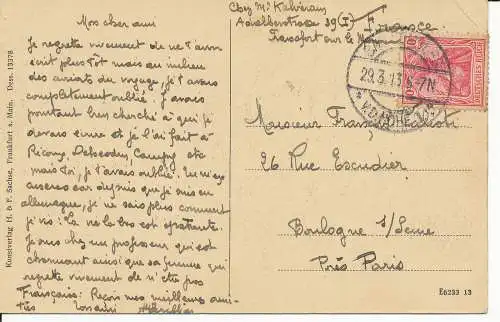 Mon cher ami
Je regrette vivement de ne t'avoir
écrit plus tôt mais au milieu
des aviats du voyage, je t'avais
complètement oublié. J'avais
pourtant bien cherché à qui je
devais écrire et je l'ai fait à
Ricour,
mais toi, je t'avais oublié. Tu m'ex-
cuseras car depuis que je suis en
Allemagne, je ne sais plus comment
je vis: La vie là bas est épatante.
Je suis chez un professeur qui est
charmant ainsi que sa femme qui
regrette vivement de n'être pas
Française: Reçois mes meilleures ami-
tiés
Kunstverlag H. & F. Sachse, Frankfurt a. Main. Dess. 13378
Chez Mr Kalveram
Adalberstrasse 39 (I)
Francfort sur le Main
France
29.3.13.6-7N
DEUTSCHES REICH
10
Monsieur François
26 Rue Escudier
Boulogne s/Seine
Près Paris
E6233 13